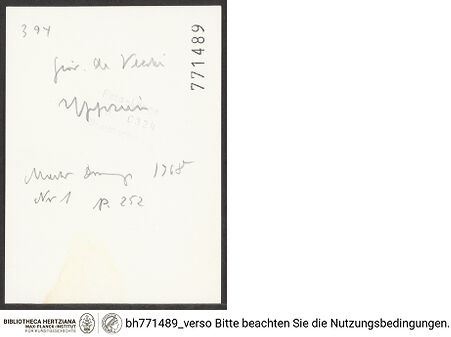 394
771489
Giov. de Vecchi
C324
Master Drawings 1968
Nr 1 p. 252
BIBLIOTHECA HERTZIANA
MAX-PLANCK-INSTITUT
FÜR KUNSTGESCHICHTE
bh771489_verso Bitte beachten Sie die Nutzungsbedingungen.